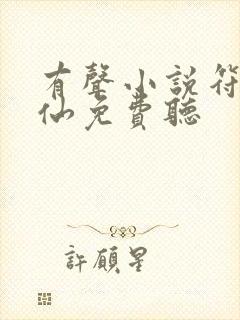 有聲小說符
仙免費聽
許願星